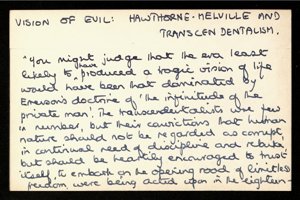 VISION OF EVIL: HAWTHORNE-MELVILLE AND
TRANSCENDENTALISM.
"You might judge that the era least
likely to have produced a tragic vision of life
would have been that dominated by
Emerson's doctrine of 'the infinitude of the
private man'. The transcendentalists were few
in number, but their convictions that human
nature should not be regarded as corrupt,
in continual need of discipline and rebuke,
but should be heartily encouraged to trust
itself, to embark on the opening road of limitless
freedom were being acted upon in the eighteen-